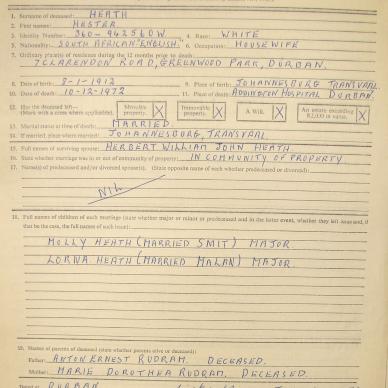 1. Surname of deceased: HEATH
2. First names: HESTER
3. Identity Number: 360-942560W 4. Race: WHITE
5. Nationality: SOUTH AFRICAN "ENGLISH" 6. Occupation: HOUSEWIFE
7. Ordinary places of residence during the 12 months prior to death:
7 CLARENDON ROAD, GREENWOOD PARK, DURBAN.
8. Date of birth: 8-1-1912 9. Place of birth: JOHANNESBURG TRANSVAAL
10. Date of death: 10-12-1972 11. Place of death: ADDINGTON HOSPITAL DURBAN.
12. Has the deceased left— Movable property. X Immovable property. X A Will. X An estate exceeding R2,000 in value. X
(Mark with a cross where applicable).
13. Marital status at time of death: MARRIED
14. If married, place where married: JOHANNESBURG, TRANSVAAL
15. Full names of surviving spouse: HERBERT WILLIAM JOHN HEATH.
16. State whether marriage was in or out of community of property: IN COMMUNITY OF PROPERTY
17. Name(s) of predeceased and/or divorced spouse(s). (State opposite name of each whether predeceased or divorced):
NIL
18. Full names of children of each marriage (state whether major or minor or predeceased and in the latter event, whether they left issue and, if
that be the case, the full names of such issue):
MOLLY HEATH (MARRIED SMIT) MAJOR
LORNA HEATH (MARRIED MALAN) MAJOR
19. Names of parents of deceased (state whether parents alive or deceased):
Father: ANTON ERNEST RUDRAM. DECEASED.
Mother: MARIE DOROTHEA RUDRAM, DECEASED.
Dated at DURBAN